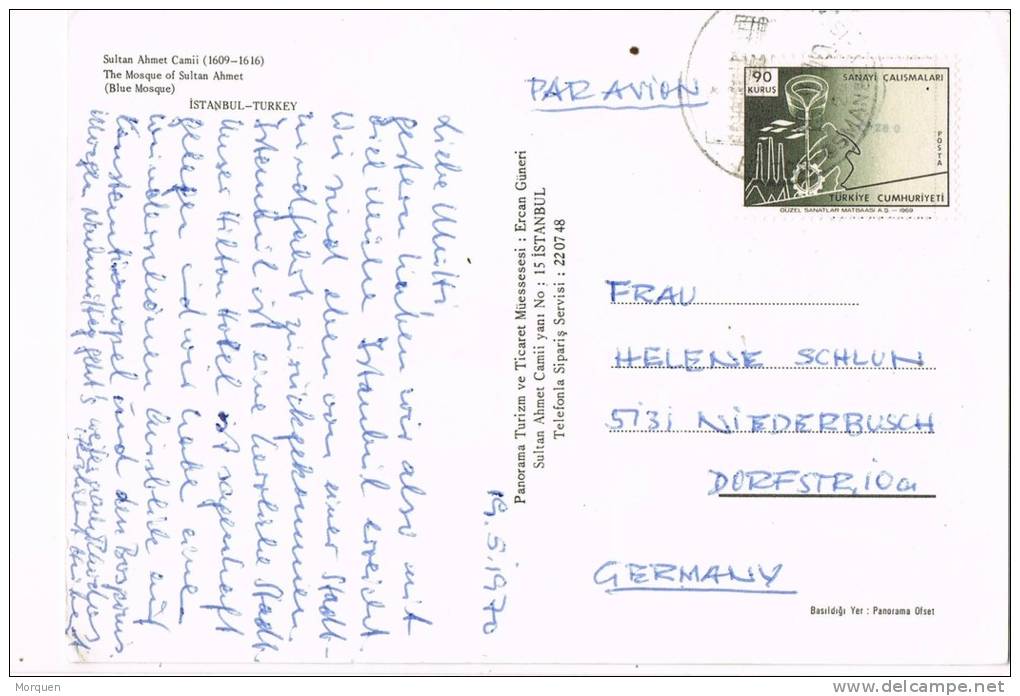 Sultan Ahmet Camii (1609-1616)
The Mosque of Sultan Ahmet
(Blue Mosque)
İSTANBUL-TURKEY
19.5.1970
Liebe Mutti
gestern haben wir also mit
viel Istanbul erreicht.
Wir sind eben von einer Stadt-
rundfahrt zurückgekommen.
Istanbul ist eine herrliche Stadt.
Unser Hilton Hotel ist sagenhaft
gelegen und wir habe eine
wunderschönen Ausblick auf
Constantinopel und den Bosporus.
Morgen Nachmittag geht's weiter nach Rhodos
Panorama Turizm ve Ticaret Müessesesi : Ercan Güneri
Sultan Ahmet Camii yanı No : 15 İSTANBUL
Telefonla Sipariş Servisi : 220748
PAR AVION
90
KURUŞ
SANAYİ ÇALIŞMALARI
POSTA
TÜRKİYE CUMHURİYETİ
GÜZEL SANATLAR MATBAASI A.Ş. - 1969
FRAU
HELENE SCHLUN
5131 NIEDERBUSCH
DORFSTR. 10a
GERMANY
Basıldığı Yer : Panorama Ofset
Morquen
delcampe.net